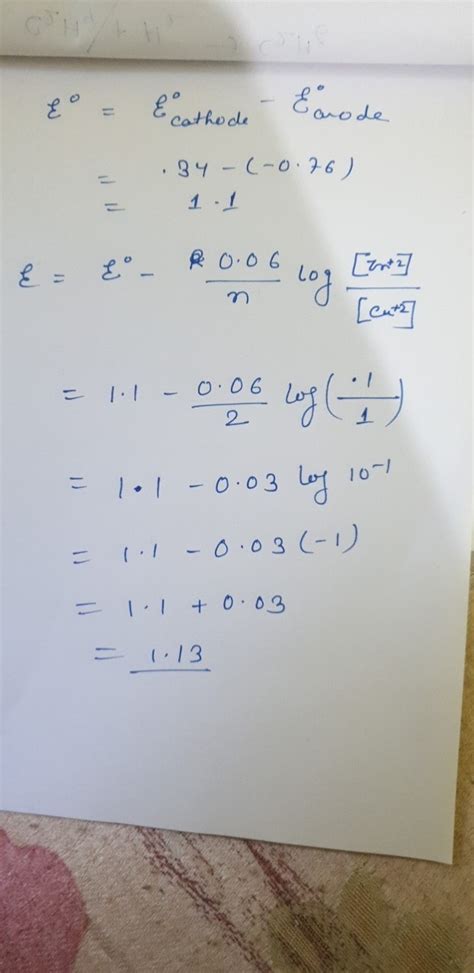 E° = E°cathode - E°anode
= .34 - (-0.76)
= 1.1
E = E° - 0.06/n log [Zn+2]/[Cu+2]
= 1.1 - 0.06/2 log(.1/1)
= 1.1 - 0.03 log 10-1
= 1.1 - 0.03 (-1)
= 1.1 + 0.03
= 1.13